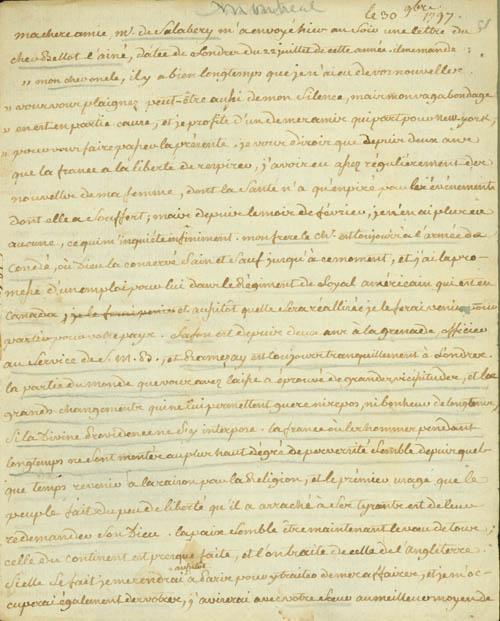 Montreal
le 30 9bre 1797.
ma chere amie, mr. de Salabery m'a envoyé hier au Soir une lettre du
chev Bellot l'ainé, datée de Londres du 22 juillet de cette année. il me mande :
" mon cher oncle, il y a bien longtemps que je n'ai eu de vos nouvelles
" vous vous plaignez peut-être aussi de mon Silence, mais mon vagabondage
" en est en partie cause, et je profite d'un de mes amis qui part pour new york,
" pour vous faire passer la présente. je vous dirois que depuis deux ans
que la france a la liberté de respirer, j'avois eu assez régulierement des
nouvelles de ma femme, dont la Santé n'a qu'empiré par les événements
dont elle a Souffert ; mais depuis le mois de fevrier, je n'en ai plus reçu
aucune, ce qui m'inquiéte infiniment. mon frere le chr. est toujours à l'armée de
Condé, où Dieu l'a conservé Sain et Sauf jusqu'à ce moment, et j'ai la pro-
messe d'un emploi pour lui dans le Régiment de Loyal américain qui est en
Canada, et aussitot qu'elle Sera réallisée je le ferai venir pour
partir pour votre pays. est depuis deux ans à la grenade officier
au Service de S. M. B., et Ramezay est toujours tranquillement à Londres.
la partie du monde que vous avez laissé a éprouvé de grandes vicissitudes, et les
grands changements qui ne lui permettent guere ni repos, ni bonheur de longtems,
Si la Divine Providence ne S'y interpose. la france où les hommes pendant
longtemps ne Sont montés au plus haut dégré de perversité Semble depuis quel-
que temps revenir à la raison par la Religion, et le prémier usage que le
peuple fait du peu de liberté qu'il a arraché à Ses tyrans est de leur
redemander Son Dieu. la paix Semble être maintenant le vœu de tous,
celle du Continent est presque faite, et l'on traite de celle de l'Angleterre.
Si elle Se fait je me rendrai aussitôt à Paris pour y traiter de mes affaires, et je m'oc-
cuperai également des votres, j'aviserai avec votre Sœur au meilleur moyen de